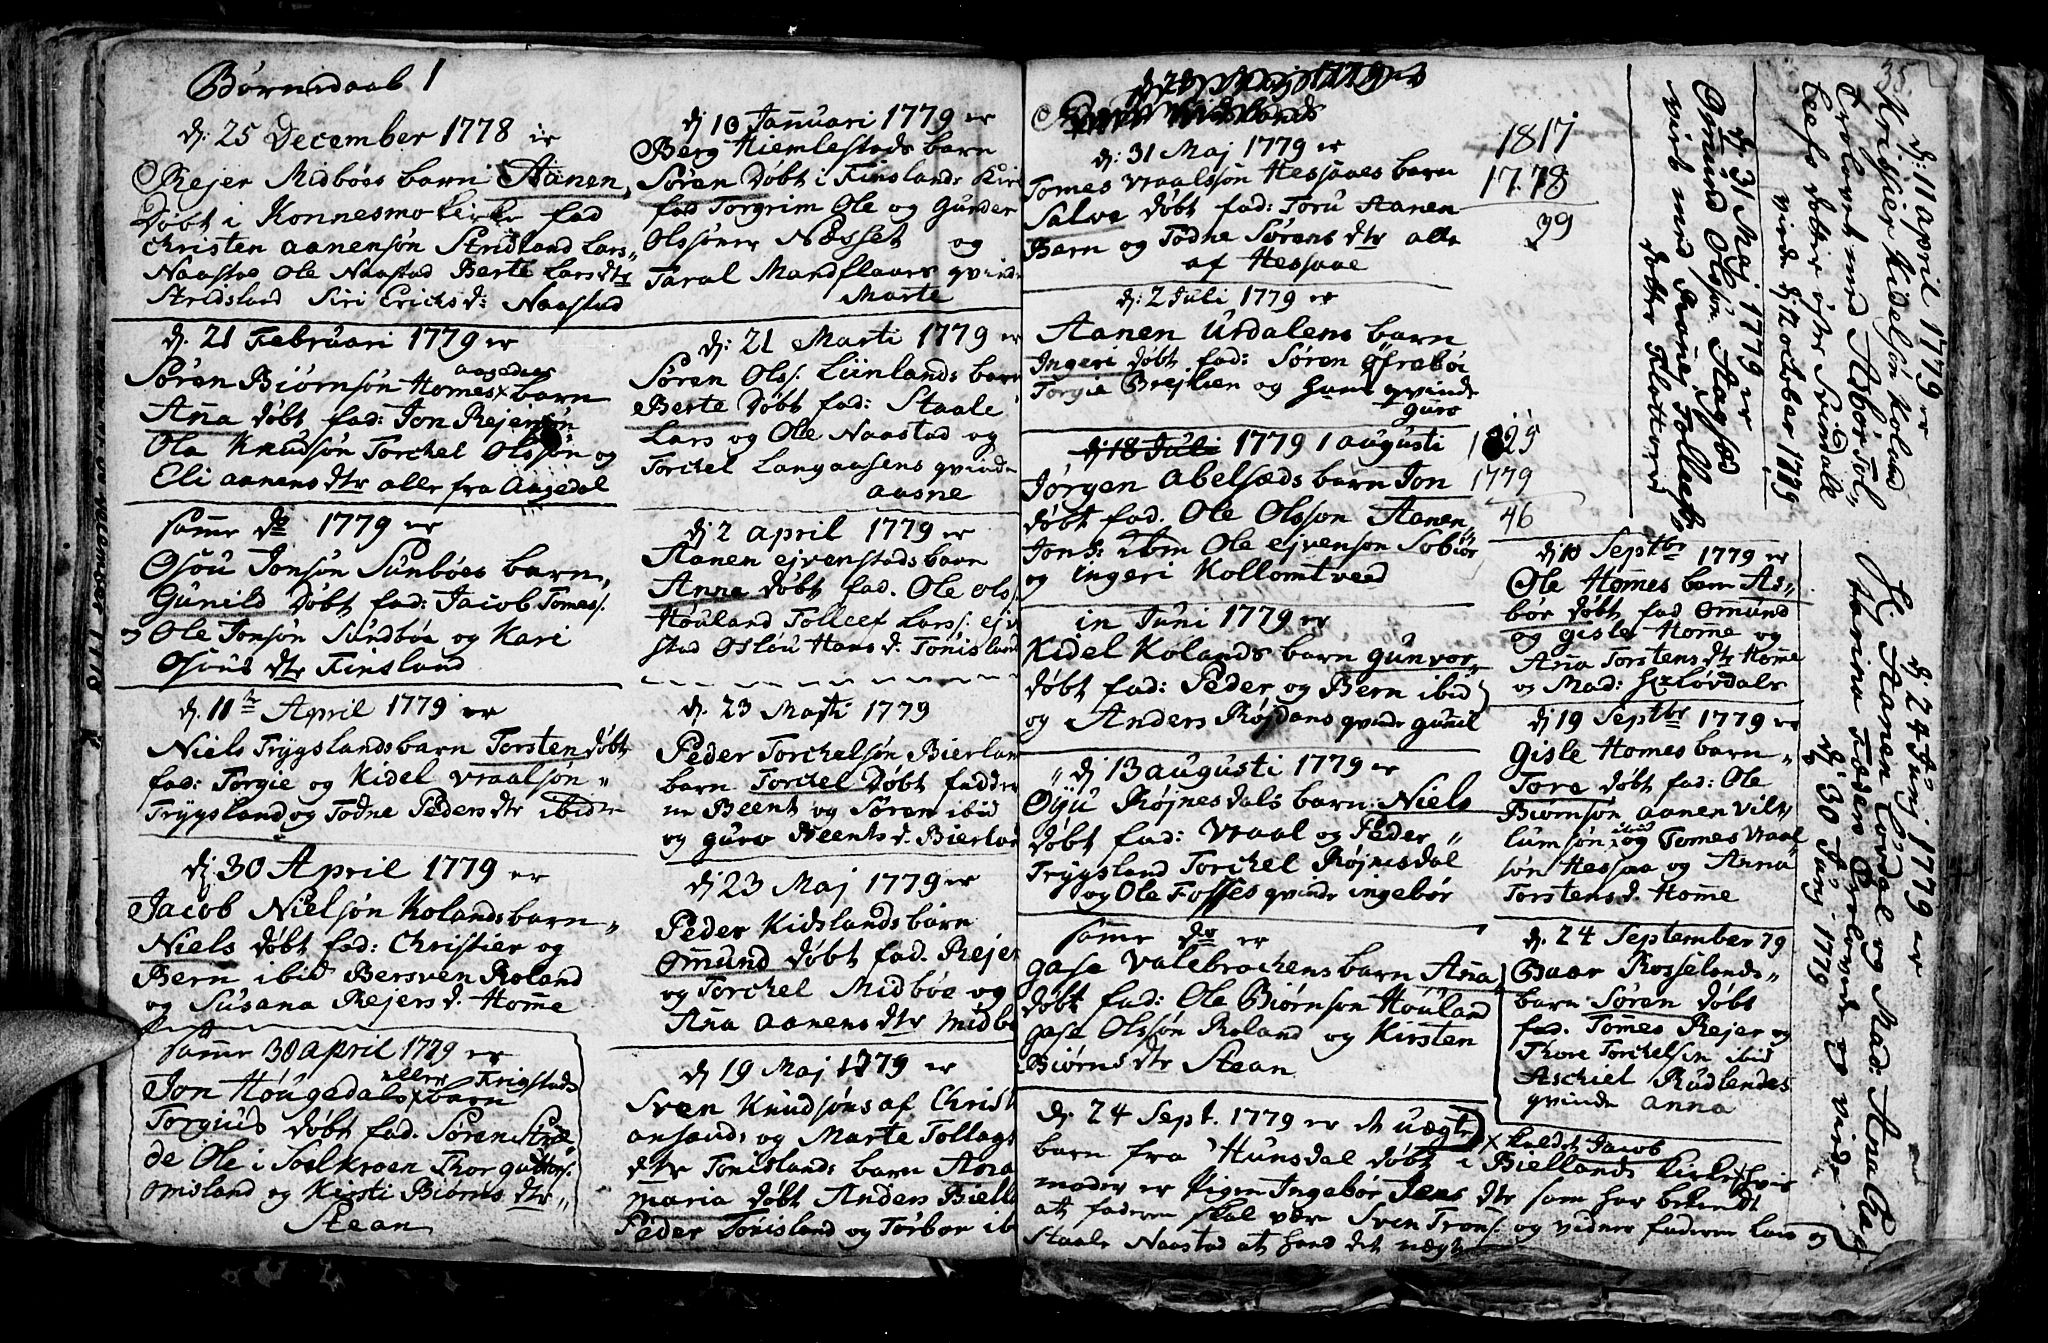 Børnedaab 1
dj: 25 December 1778 er
Rejer Midbøes barn Aanen,
døbt i Konnesmo kirke fad
Christen aanensøn Stridsland Lars
Naastoe Ole Naastad Berte Lars dtr
Stridsland Siri Erichs d: Naastad
dj. 21 Februari 1779 er
Søren Biørnsøn Homes x barn
aagedals
Aña døbt fad: Jon Rejersøn
Ola Knudsøn Torchel Olsøn og
Eli aanens dtr alle fra Aagedal
same do 1779 er
Osou Jonsøn Sunbøes barn
Gunild døbt fad: Jacob Tomes:
Ole Jonsøn Sundbøe og Kari
Osous dtr Finsland
dj. 11te April 1779 er
Niels Trygslands barn Torsten døbt
fad: Torgie og Kidel vraalsøn
Trygsland og Todne Peders dtr ibid
dj 30 April 1779 er
Jacob Nielsøn Kolands barn
Niels døbt fad: Christier og
Bern ibid Bersven Roland
og Susana Rejers d. Home
same 30 april 1779 er
Jon Hougedals x barn
eller Frigstads
Torgius døbt fad. Søren
de Ole i Soslkroen Thor
omsland og Kirsti Biørns dtr
Stean
dj 10 Januari 1779 er
Berg Hiemlestads barn
Søren døbt i Finslands Kir
fad Torgrim Ole og Gunder
Olssøner Næsset og
Taral Mandflaaes qvinde
Marte
dj: 21 Marti 1779 er
Søren Ols: Liinlands barn
Berte døbt fad: Staale
Lars og Ole Naastad og
Torchel Langaasens qvinde
aasne
dj 2 april 1779 er
Aanen ejvenstads barn
Anna døbt fad. Ole ols
Houland Tolleef Lars: ejv
stad Oslou Hans d. Tonisland
dj. 23 Marti 1779
Peder Torchelsøn Bierlan
barn Torchel døbt fadder
ne Beent og Søren ibid
og guro Beents d. Bierla
dj 23 Maj 1779 er
Peder Kidslands barn
Omund døbt fad. Rejer
og Torchel Midbøe og
Aña aanens dtr Midbø
dj 19 Maj 1779 er
Sven Knudsøns af Christ
ansand: og Marte Tollags
dtr Tonislands barn Ana
maria døbt Anders Biella
Peder Tonisland og Torbor ib
dj 31 Maj 1779 er
Tomes vraalssøn Hessaaes barn
Salve døbt fad: Toru Aanen
Bern og Todne Sørens dtr alle
af Hessaae
dj: 2 Juli 1779 er
Aanen Urdalens barn
Ingeri døbt fad: Søren Øfrebøe
Torgie Brejlien og hans qvinde
Guro
dj 18 Juli 1779 1 augusti
Jørgen Abelsæds barn Jon
døbt fad. Ole Olsson Aanen
Jons: ibm Ole ejvensøn Sobiør
og Ingeri Kollomtved
in Juni 1779 er
Kidel Kolands barn gunvor
døbt fad: Peder og Bern ibid
og Anders Røjdans qvinde gunil
dj 13 augusti 1779 er
Øyu Røjnesdals barn: Niels
døbt fad: Vraal og Peder
Trygsland Torchel Røjnesdal
og Ole Fosses qvinde ingebør
same do er
gase Valebrochens barn Aña
døbt fad: Ole Biørnsøn Houland
gase Olssøn Roland og Kirsten
Biørns dtr Stean
dj. 24 Sept. 1779 er et uægte
barn fra Hunsdal døbt i Biellands Kirke x hvis
x kaldet Jacob
moder er Pigen Ingebør Jens dtr som har bekiendt
at faderen skal være Sven Trons: og vidner fadderne Lars og
Staale Naastad at hand det
1817
1778
39
1825
1779
46
dj 10 Septbr 1779 er
Ole Homes barn As
bor døbt fad Omund
og gisle Home og
Aña Torstens dtr Home
og Mad: Løvdals
dj 19 Septbr 1779 er
Gisle Homes barn
Tore døbt fad: Ole
Biørnsøn aanen vil
lumsøn ibid og Tomes vraal
søn Hessaa og Anna
Torstens d. Home
dj. 24 September 79
Baar Rosselands
barn Søren døbt
fad. Tomes Rejer og
Thore Torchelsen ibid
Aschiel Rudlendes
qvinde anna
dj. 31 Maj 1779 er
Omund Olsøn Aagsæd
viet med Aanes Tolleefs
dotter Flottorp
35.
dj: 11 april 1779 er
Krissier Kidelsøn Koland
trolovet med Asbør Tol
leefs dotter øfre Svindale
viede dj 12 october 1779
dj. 24 Junj 1779 er
Hr Aanen Lovdal og Mad: Ana Ca
tharina Fasers trolovede og viede
dj. 30 Junj 1779